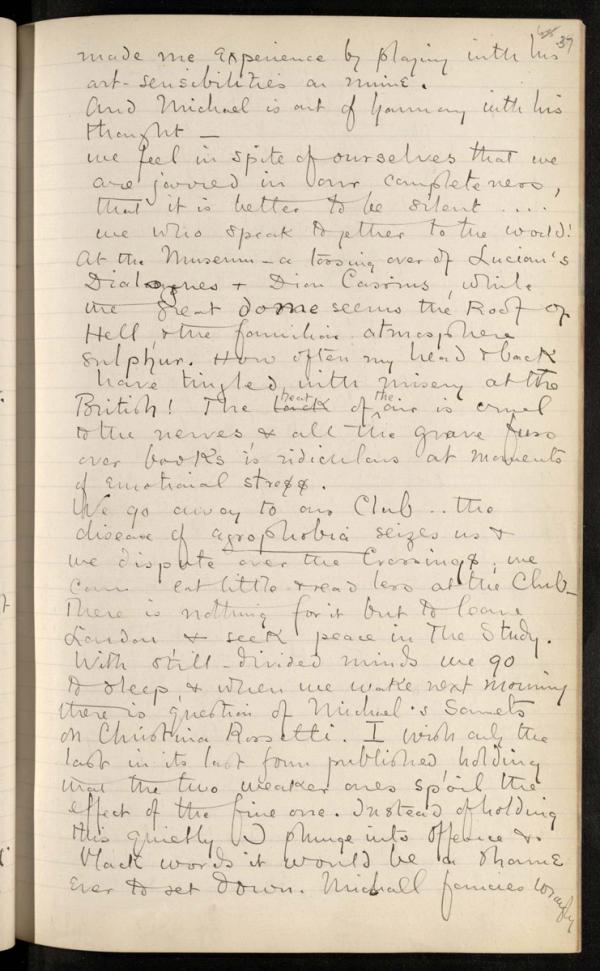 37
made me experience by playing with his
art-sensibilities on mine.
And Michael is out of harmony with his
thought —
we feel in spite of ourselves that we
are jarred in our completeness,
that it is better to be silent ....
we who speak together to the world!
At the Museum — a tossing over of Lucian's
Dialogues & Dion Cassius, while
the great dome seems the Roof of
Hell, & the familiar atmosphere
sulphur. How often my head & back
have tingled with misery at the
British! The heat of the air is cruel
to the nerves & all the grave fuss
over books is ridiculous at moments
of emotional stress.
We go away to our Club .. the
disease of agrophobia seizes us &
we dispute over the Crossings, we
eat little & read less at the Club —
There is nothing for it but to leave
London & seek peace in The Study.
With still-divided minds we go
to sleep, & when we wake next morning
there is question of Michael's Sonnets
on Christina Rossetti. I wish only the
last in its last form published, holding
that the two weaker ones spoil the
effect of the fine one. Instead of holding
this quietly I plunge into offence &
black words it would be a shame
ever to set down. Michael fancies